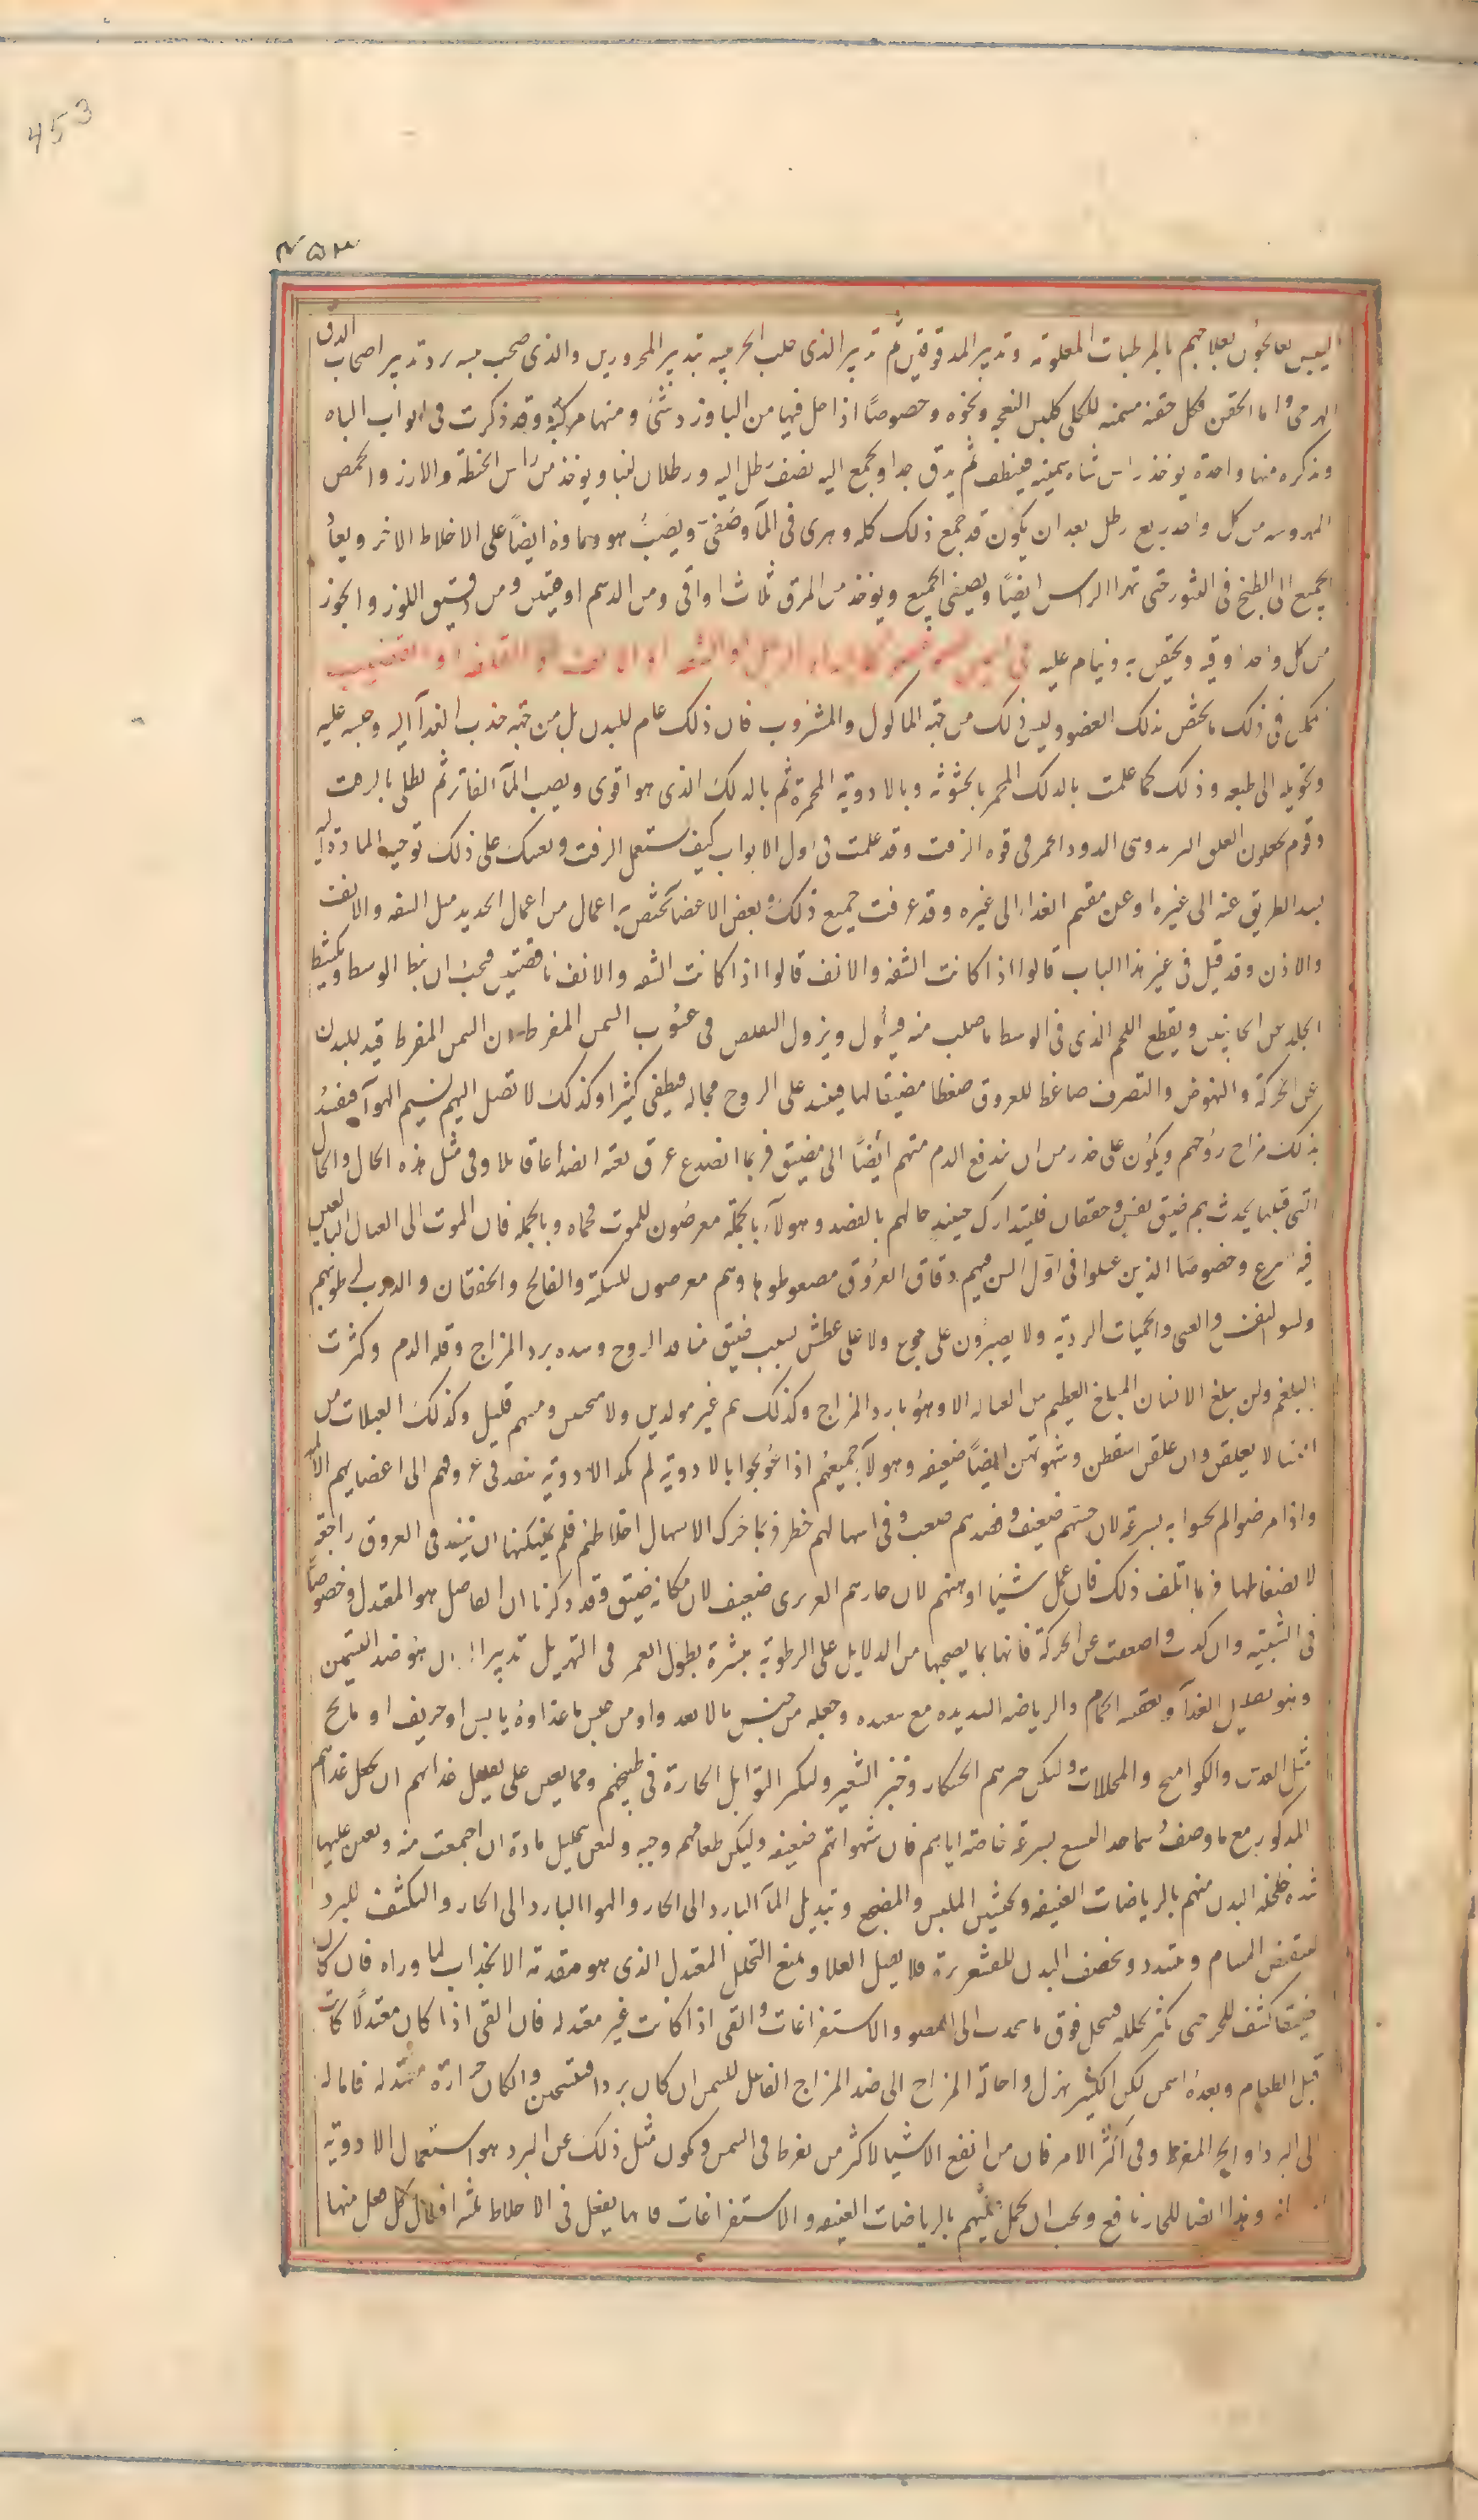 453
٤٥٣
اليبس يعالجون بعلاجهم بالمرطبات المعلومة وتدبير المدقوقين ثم تدبير الذى صلب الحر فيه تدبير المحرورين والذى صحب يبسه برد تدبير اصحاب الدق
الهرمى واما الحقن فكل حقنة مسمنة للكلى كلبن النعجة ونحوه وخصوصًا اذا حل فيها من الباوزد شئ ومنها مركبة وقد ذكرت فى ابواب الباه
ونذكره منها واحدة يوخذ راس شاة سمينة فينظف ثم يدق جدا ويجمع اليه نصف رطل الية ورطلان لبنا ويوخذ من راس الحنطة والارز والحمص
المهروسه من كل واحد ربع رطل بعد ان يكون قد جمع ذلك كله وهرى فى المآ وصفى ويصب هو وماوه ايضًا على الاخلاط الاخر ويعاد
الجميع الى الطبخ فى التنور حتى تهرا الراس ايضًا ويصفى الجميع ويوخذ من المرق ثلاث اواقى ومن الدسم اوقيتين ومن دقيق اللوز والجوز
من كل واحد اوقيه ويحقن به وينام عليه
فى ذلك ما يخص بذلك العضو وليس ذلك من جهة الماكول والمشروب فان ذلك عام للبدن بل من جهة جذب الغدآ اليه وحبسه عليه
وتحويله الى طبعه وذلك كما علمت بالدلك المحمر بالخشونه وبالادوية المحمرة ثم بالدلك الذى هو اقوى ويصب المآ الفاتر ثم يطلى بالزفت
وقوم يجعلون العلق الدود احمر فى قوة الزفت وقد علمت فى اول الابواب كيف يستعمل الزفت ويعينك على ذلك توجيه المادة اليه
بسد الطريق عنه الى غيره او عن مقسم الغداء الى غيره وقد عرفت جميع ذلك وبعض الاعضآ يختص به اعمال من اعمال الحديد مثل الشفه والانف
والاذن وقد قيل فى غير هذا الباب قالوا اذا كانت الشفة والانف قالوا اذا كانت الشفه والانف ناقصتين فيجب ان يبط الوسط ويكشط
الجلد من الجانبين ويقطع اللحم الذى فى الوسط ما صلب منه فيطول ويزول التقلص فى عيوب السمن المفرط ان السمن المفرط قيد للبدن
عن الحركة والنهوض والتصرف ضاغط للعروق ضغطا مضيقا لها فيسد على الروح مجاله فيطفى كثيرا وكذلك لا تصل اليهم نسيم الهوآ فيفسد
بذلك مزاج روحهم ويكون على حذر من ان يندفع الدم منهم ايضًا الى مضيق فربما انصدع عرق بغته انصداعا قاتلا وفى مثل هذه الحال والحال
التى قبلها يحدث بهم ضيق نفس وخفقان فليتدارك حينئذ حالهم بالفصد وهولآء بالجملة معرضون للموت فجاه وبالجمله فان الموت الى العبال البالغين
فيه اسرع وخصوصًا الذين عبلوا فى اول السن فهم دقاق العروق مضغوطوها وهم معرضون للسكتة والفالج والخفقان والذرب لرطوبتهم
ولسو النفس والغشى والحميات الردية ولا يصبرون على جوع ولا على عطش بسبب ضيق منافد الروح وشده برد المزاج وقله الدم وكثرت
البلغم ولن يبلغ الانسان المبلغ العظيم من العباله الا وهو بارد المزاج وكذلك هم غير مولدين ولا منجبين ومنيهم قليل وكذلك العبلات من
النسا لا يعلقن وان علقن اسقطن وشهوتهن ايضًا ضعيفه وهولآء جميعهم اذا عولجوا بالادوية لم يكد الادوية ينفد فى عروقهم الى اعضايهم الالمه
واذا مرضوا لم يحسوا به بسرعة لان حسهم ضعيف وفصدهم صعب وفى اسهالهم خطر فربما حرك الاسهال اخلاطهم فلم يمكنها ان تنفذ فى العروق راجعة
لانضغاطها فربما اتلف ذلك فان عمل شيئا اوهنهم لان حارهم الغريزى ضعيف لان مكانه ضيق وقد ذكرنا ان الفاضل هو المعتدل وخصوصًا
فى الشبيبة وان كدت واضعفت عن الحركة فانها بما يصحبها من الدلايل على الرطوبة مبشرة بطول العمر فى التهزيل تدبير الهزال هو ضد التسمين
وهو تقليل الغدآ وتعقبه الحمام والرياضه الشديده مع تبعيده وجعله من جنس ما لا يغدو او من جنس ما غداوه يابس او حريف او مالح
مثل العدس والكواميخ والمخللات وليكن خبزهم الخشكار وخبز الشعير وليكثر التوابل الحارة فى طبيخهم ومما يعين على تقليل غداهم ان يجعل غداهم
المدكور مع ما وصف الشبع بسرعة خاصة اياهم فان شهواتهم ضعيفه وليكن طعامهم وجبه ولتعن بتحليل مادة ان اجتمعت منه وتعين عليها
شدة خلخلة البدن منهم بالرياضات العنيفة وتخشين الملبس والمضجع وتبديل المآ البارد الى الحار والهوا البارد الى الحار والتكشف للبرد
لينقبض المسام وينسد ويخصف البدن للقشعريرة فلا يقبل الغدا ويمنع التحلل المعتدل الذى هو مقدمة الانجذاب لما وراه فان كان
صيفا كشف للحر حتى يكثر تحلله فيحل فوق ما ينجذب الى العضو والاستفراغات والقى اذا كانت غير معتدله فان القى اذا كان معتدلًا كان
قبل الطعام وبعده اسمن لكن الكثير يهزل واحالة المزاج الى ضد المزاج الفاعل للسمن ان كان بردا فتسخين وان كان حرارة معتدله فاماله
الى البرد او الحر المفرط وفى اكثر الامر فان من انفع الاشيا لاكثر من يفرط فى السمن ويكون مثل ذلك عن البرد هو استعمال الادوية
وهذا ايضا للحار نافع ويجب ان يحمل عليهم بالرياضات العنيفه والاستفراغات فانها يفعل فى الاخلاط ثلثه افعال كل فعل منها